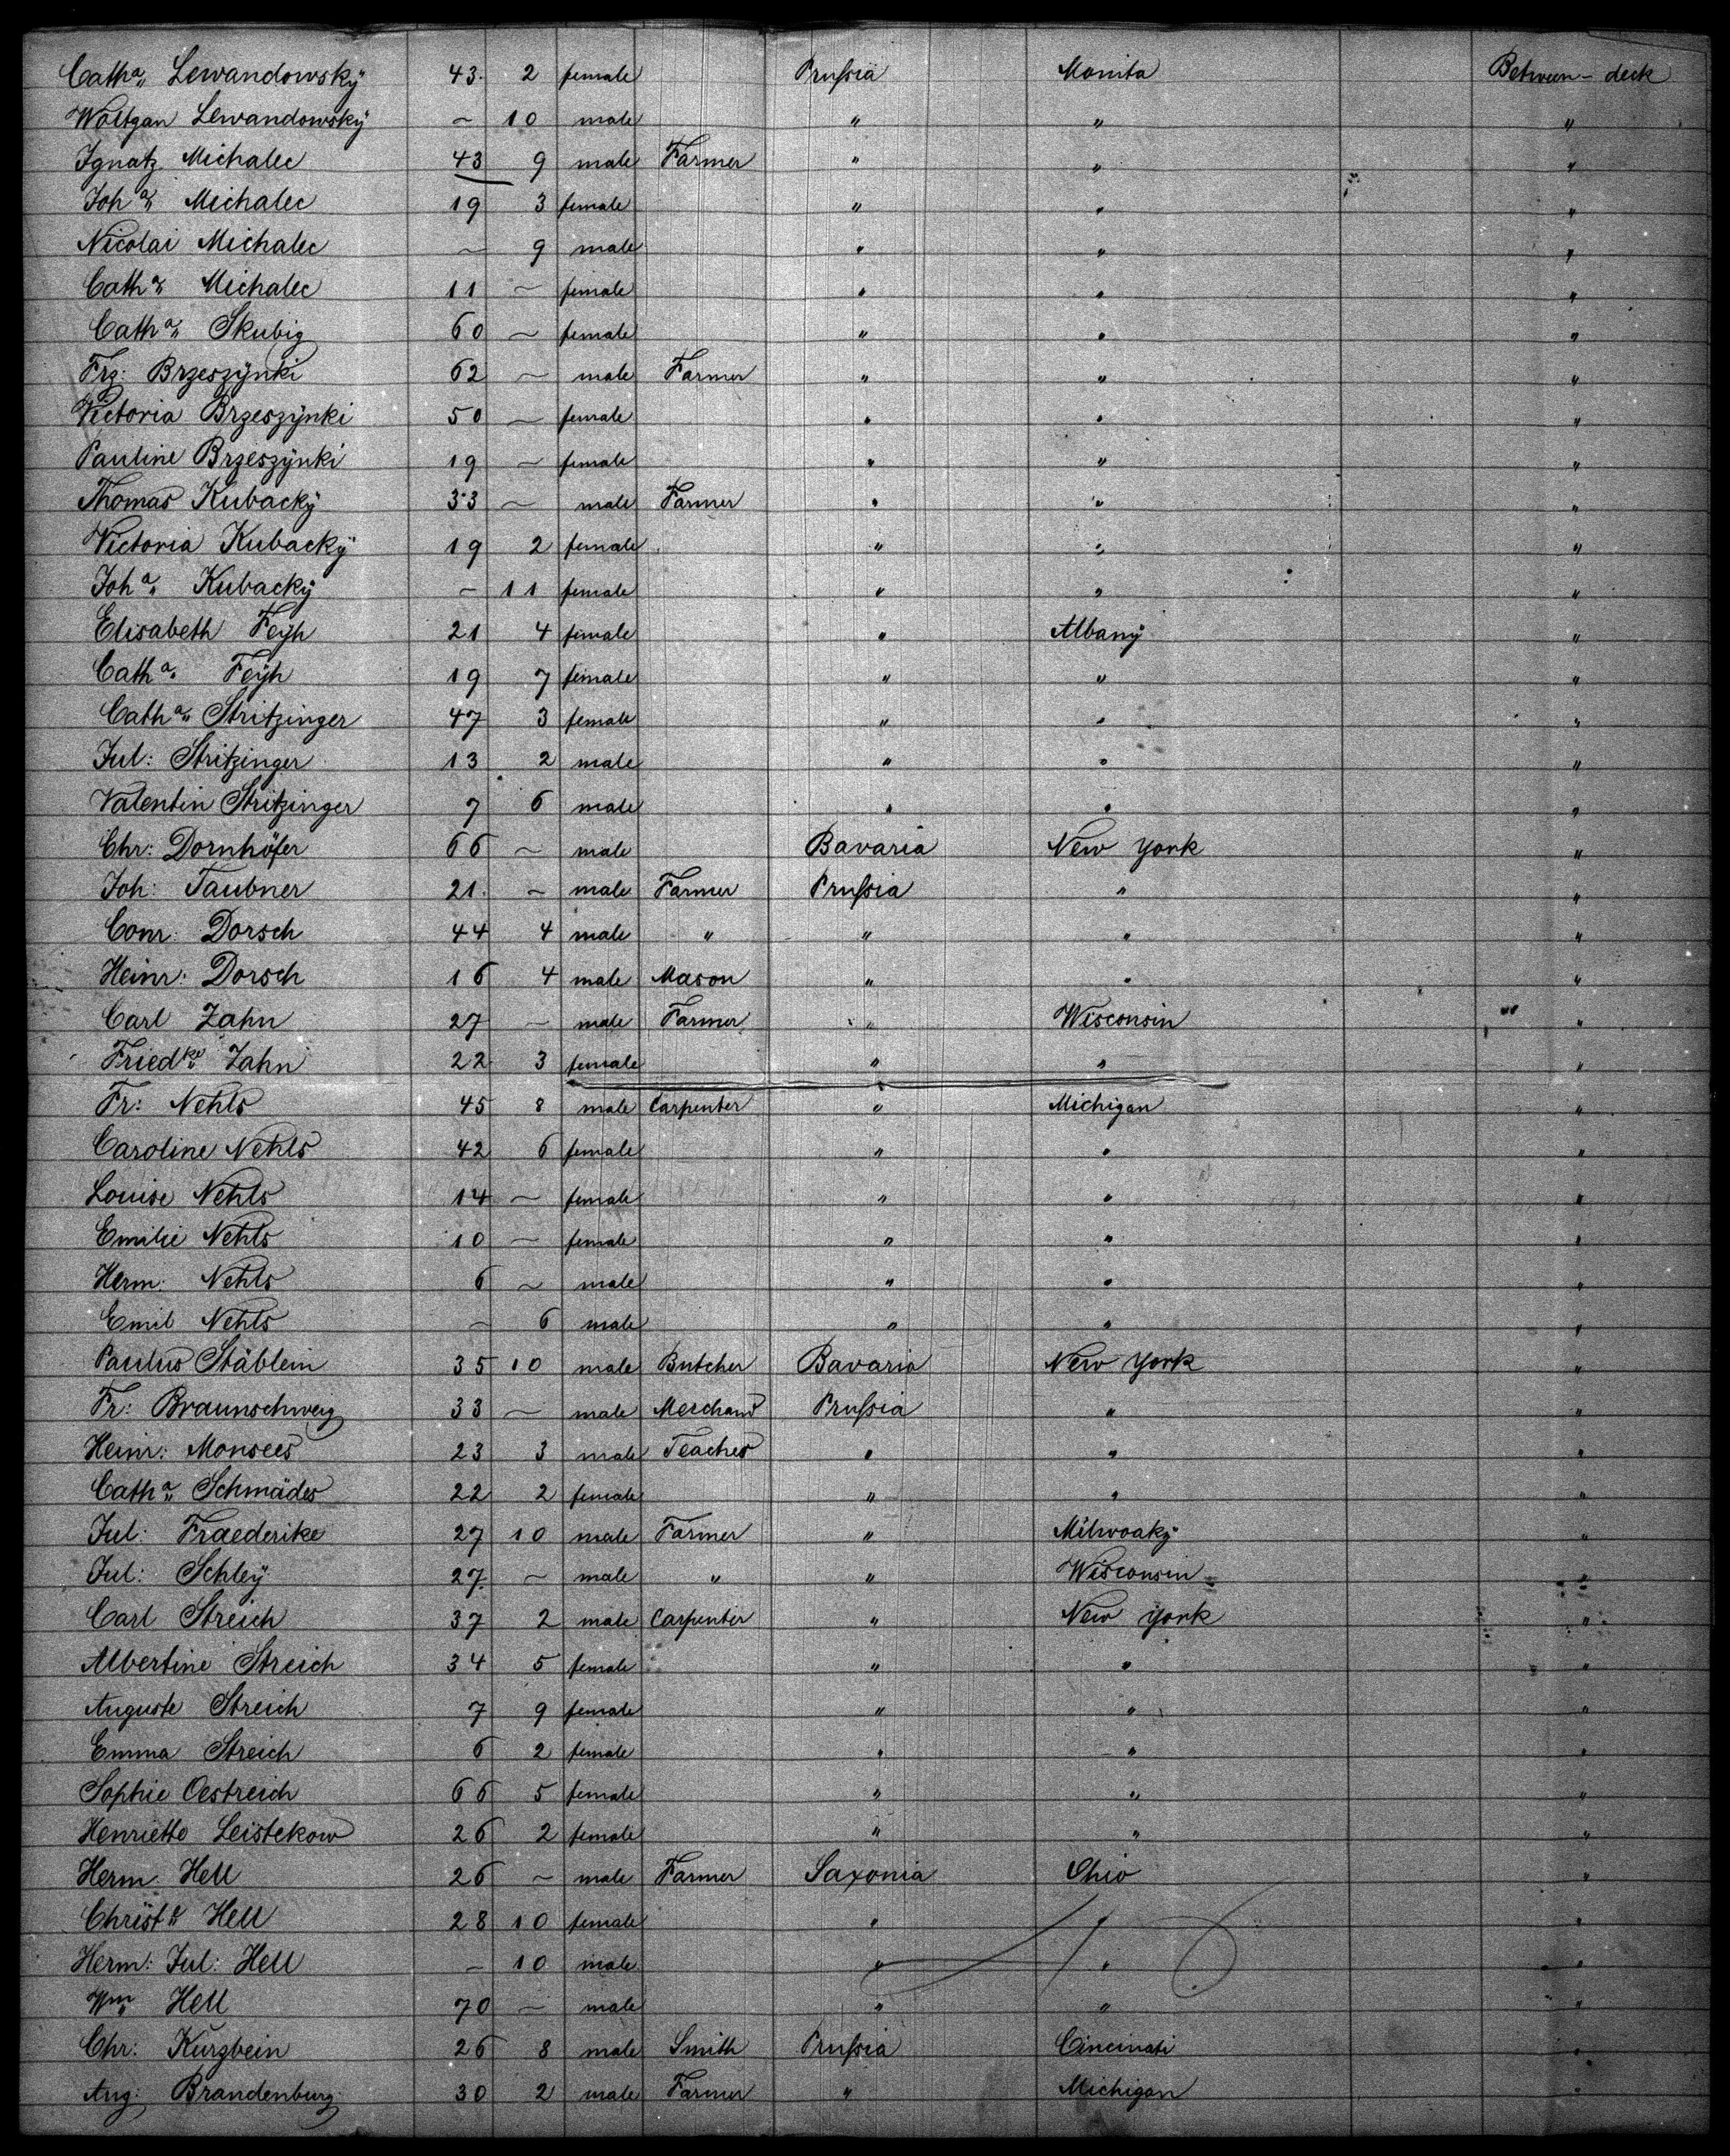 Cath.a Lewandowskÿ 43. 2 female Prußia Monita Between-deck
Woltgan Lewandowskÿ ~ 10 male " " "
Ignatz Michalec 43 9 male Farmer " " "
Joh.a Michalec 19 3 female " " "
Nicolai Michalec ~ 9 male " " "
Cath.a Michalec 11 ~ female " " "
Cath.a Skubig 60 ~ female " " "
Frz: Brzeszÿnki 62 ~ male Farmer " " "
Victoria Brzeszÿnki 50 ~ female " " "
Pauline Brzeszÿnki 19 ~ female " " "
Thomas Kubackÿ 33 ~ male Farmer " " "
Victoria Kubackÿ 19 2 female " " "
Joh.a Kubackÿ ~ 11 female " " "
Elisabeth Feÿh 21 4 female " Albanÿ "
Cath.a Feÿh 19 7 female " " "
Cath.a Stritzinger 47 3 female " " "
Jul: Stritzinger 13 2 male " " "
Valentin Stritzinger 7 6 male " " "
Chr: Dornhöfer 66 ~ male Bavaria New York "
Joh: Taubner 21. ~ male Farmer Prußia " "
Conr: Dorsch 44 4 male " " " "
Heinr: Dorsch 16 4 male Mason " " "
Carl Zahn 27 ~ male Farmer " Wisconsin "
Friedke Zahn 22 3 female " " "
Fr: Nehls 45 8 male Carpenter " Michigan "
Caroline Nehls 42 6 female " " "
Louise Nehls 14 ~ female " " "
Emilie Nehls 10 ~ female " " "
Herm: Nehls 6 ~ male " " "
Emil Nehls ~ 6 male " " "
Paulus Stäblein 35 10 male Butcher Bavaria New York "
Fr: Braunschweig 33 ~ male Merchand Prußia " "
Heinr: Monsees 23 3 male Teacher " " "
Cath.a Schmädes 22 2 female " " "
Jul: Fraederike 27 10 male Farmer " Milwoakÿ "
Jul: Schleÿ 27. ~ male " " Wisconsin "
Carl Streich 37 2 male Carpenter " New York "
Albertine Streich 34 5 female " " "
Auguste Streich 7 9 female " " "
Emma Streich 6 2 female " " "
Sophie Oestreich 66 5 female " " "
Henriette Leistekow 26 2 female " " "
Herm. Hell 26 ~ male Farmer Saxonia Ohio "
Christ.e Hell 28 10 female " " "
Herm: Jul: Hell ~ 10 male " " "
Wm Hell 70 ~ male " " "
Chr: Kurzbein 26 8 male Smith Prußia Cincinati "
Aug: Brandenburg 30 2 male Farmer " Michigan "